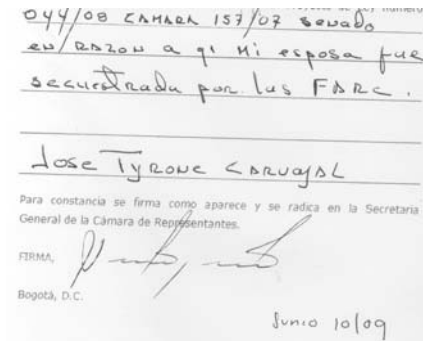 de Ley número
044/08 CAMARA 157/07 Senado
en/RAZON a q' Mi esposa fue
secuestrada por las FARC.
JOSE TYRONE CARVAJAL
Para constancia se firma como aparece y se radica en la Secretaria
General de la Cámara de Representantes.
FIRMA,
Bogotá, D.C.
Junio 10/09